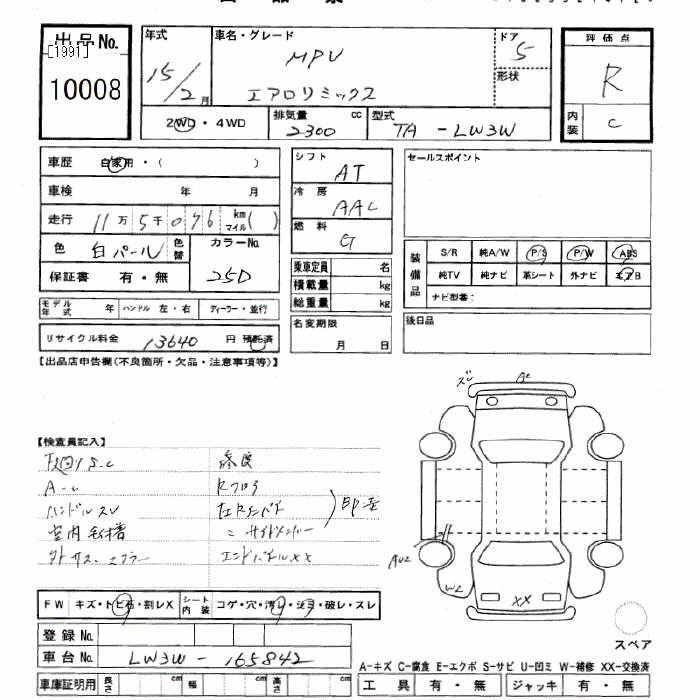 出品No.
[1991]
10008
年式
15/2月
車名・グレード
MPV
エアロリミックス
ドア
5
形状
評価点
R
内装
C
2WD・4WD
排気量 cc
2300
型式
TA - LW3W
車歴 自家用・( )
車検 年 月
走行 11万5千076 km マイル( )
色 白パール 色替
カラーNo.
25D
保証書 有・無
モデル年式 年 ハンドル 左・右 ディーラー・並行
リサイクル料金 13640 円 預託済
シフト
AT
冷房
AAC
燃料
G
乗車定員 名
積載量 kg
総重量 kg
名変期限
月 日
セールスポイント
装備品
S/R 純A/W P/S P/W ABS
純TV 純ナビ 革シート 外ナビ エアB
ナビ型番:
後日品
【出品店申告欄(不良箇所・欠品・注意事項等)】
【検査員記入】
ハンドルスレ
室内
修復
Rフロア
エンドパネルXX
ズレ
A2
AU2
W2
XX
FW キズ・トビ石・割レX シート内装 コゲ・穴・汚レ・シミ・破レ・スレ
登録No.
車台No. LW3W - 165842
車庫証明用 長さ cm 幅 cm 高さ cm
スペア
A-キズ C-腐食 E-エクボ S-サビ U-凹ミ W-補修 XX-交換済
工具 有・無 ジャッキ 有・無